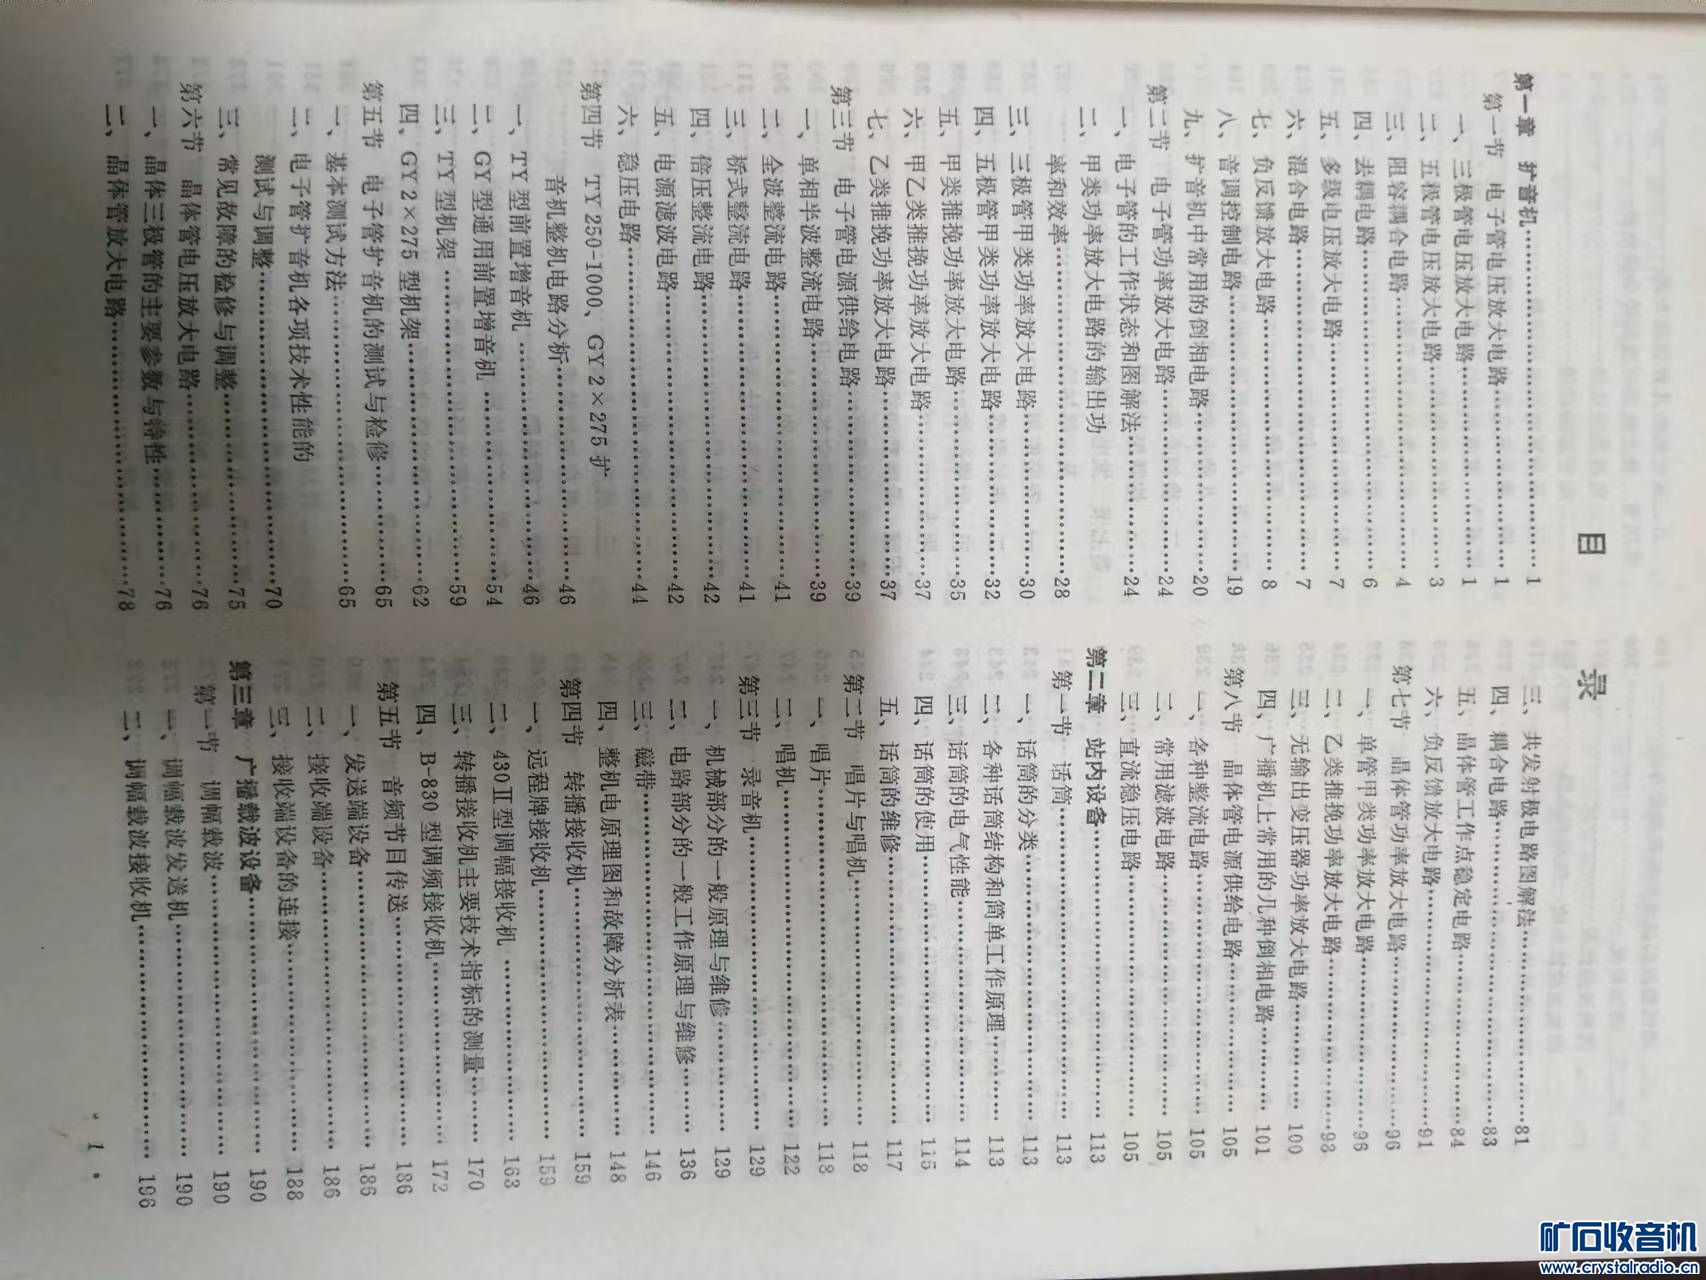 目 录
第一章 扩音机……1
第一节 电子管电压放大电路……1
一、三极管电压放大电路……1
二、五极管电压放大电路……3
三、阻容耦合电路……4
四、去耦电路……6
五、多级电压放大电路……7
六、混合电路……7
七、负反馈放大电路……8
八、音调控制电路……19
九、扩音机中常用的倒相电路……20
第二节 电子管功率放大电路……24
一、电子管的工作状态和图解法……24
二、甲类功率放大电路的输出功
率和效率……28
三、三极管甲类功率放大电路……30
四、五极管甲类功率放大电路……32
五、甲类推挽功率放大电路……35
六、甲乙类推挽功率放大电路……37
七、乙类推挽功率放大电路……37
第三节 电子管电源供给电路……39
一、单相半波整流电路……39
二、全波整流电路……41
三、桥式整流电路……41
四、倍压整流电路……42
五、电源滤波电路……42
六、稳压电路……44
第四节 TY 250-1000、GY 2×275 扩
音机整机电路分析……46
一、TY 型前置增音机……46
二、GY 型通用前置增音机……54
三、TY 型机架……59
四、GY 2×275 型机架……62
第五节 电子管扩音机的测试与检修……65
一、基本测试方法……65
二、电子管扩音机各项技术性能的
测试与调整……70
三、常见故障的检修与调整……75
第六节 晶体管电压放大电路……76
一、晶体三极管的主要参数与特性……76
二、晶体管放大电路……78
三、共发射极电路图解法……81
四、耦合电路……83
五、晶体管工作点稳定电路……84
六、负反馈放大电路……91
第七节 晶体管功率放大电路……96
一、单管甲类功率放大电路……96
二、乙类推挽功率放大电路……98
三、无输出变压器功率放大电路……100
四、广播机上常用的几种倒相电路……101
第八节 晶体管电源供给电路……105
一、各种整流电路……105
二、常用滤波电路……105
三、直流稳压电路……105
第二章 站内设备……113
第一节 话筒……113
一、话筒的分类……113
二、各种话筒结构和简单工作原理……113
三、话筒的电气性能……114
四、话筒的使用……115
五、话筒的维修……117
第二节 唱片与唱机……118
一、唱片……118
二、唱机……122
第三节 录音机……129
一、机械部分的一般原理与维修……129
二、电路部分的一般工作原理与维修……136
三、磁带……146
四、整机电原理图和故障分析表……148
第四节 转播接收机……159
一、远程牌接收机……159
二、430Ⅱ型调幅接收机……163
三、转播接收机主要技术指标的测量……170
四、B-830 型调频接收机……172
第五节 音频节目传送……186
一、发送端设备……186
二、接收端设备……186
三、接收端设备的连接……188
第三章 广播载波设备……190
第一节 调幅载波……190
一、调幅载波发送机……190
二、调幅载波接收机……196
· 1 ·
矿石收音机
www.crystalradio.cn